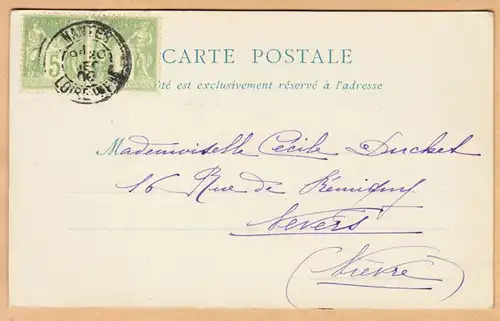 NANTES
LOIRE INFRE
5
CARTE POSTALE
té est exclusivement réservé à l'adresse
Mademoiselle Cécile Ducket
16 Rue de Rémigny
Nevers
(Nièvre)